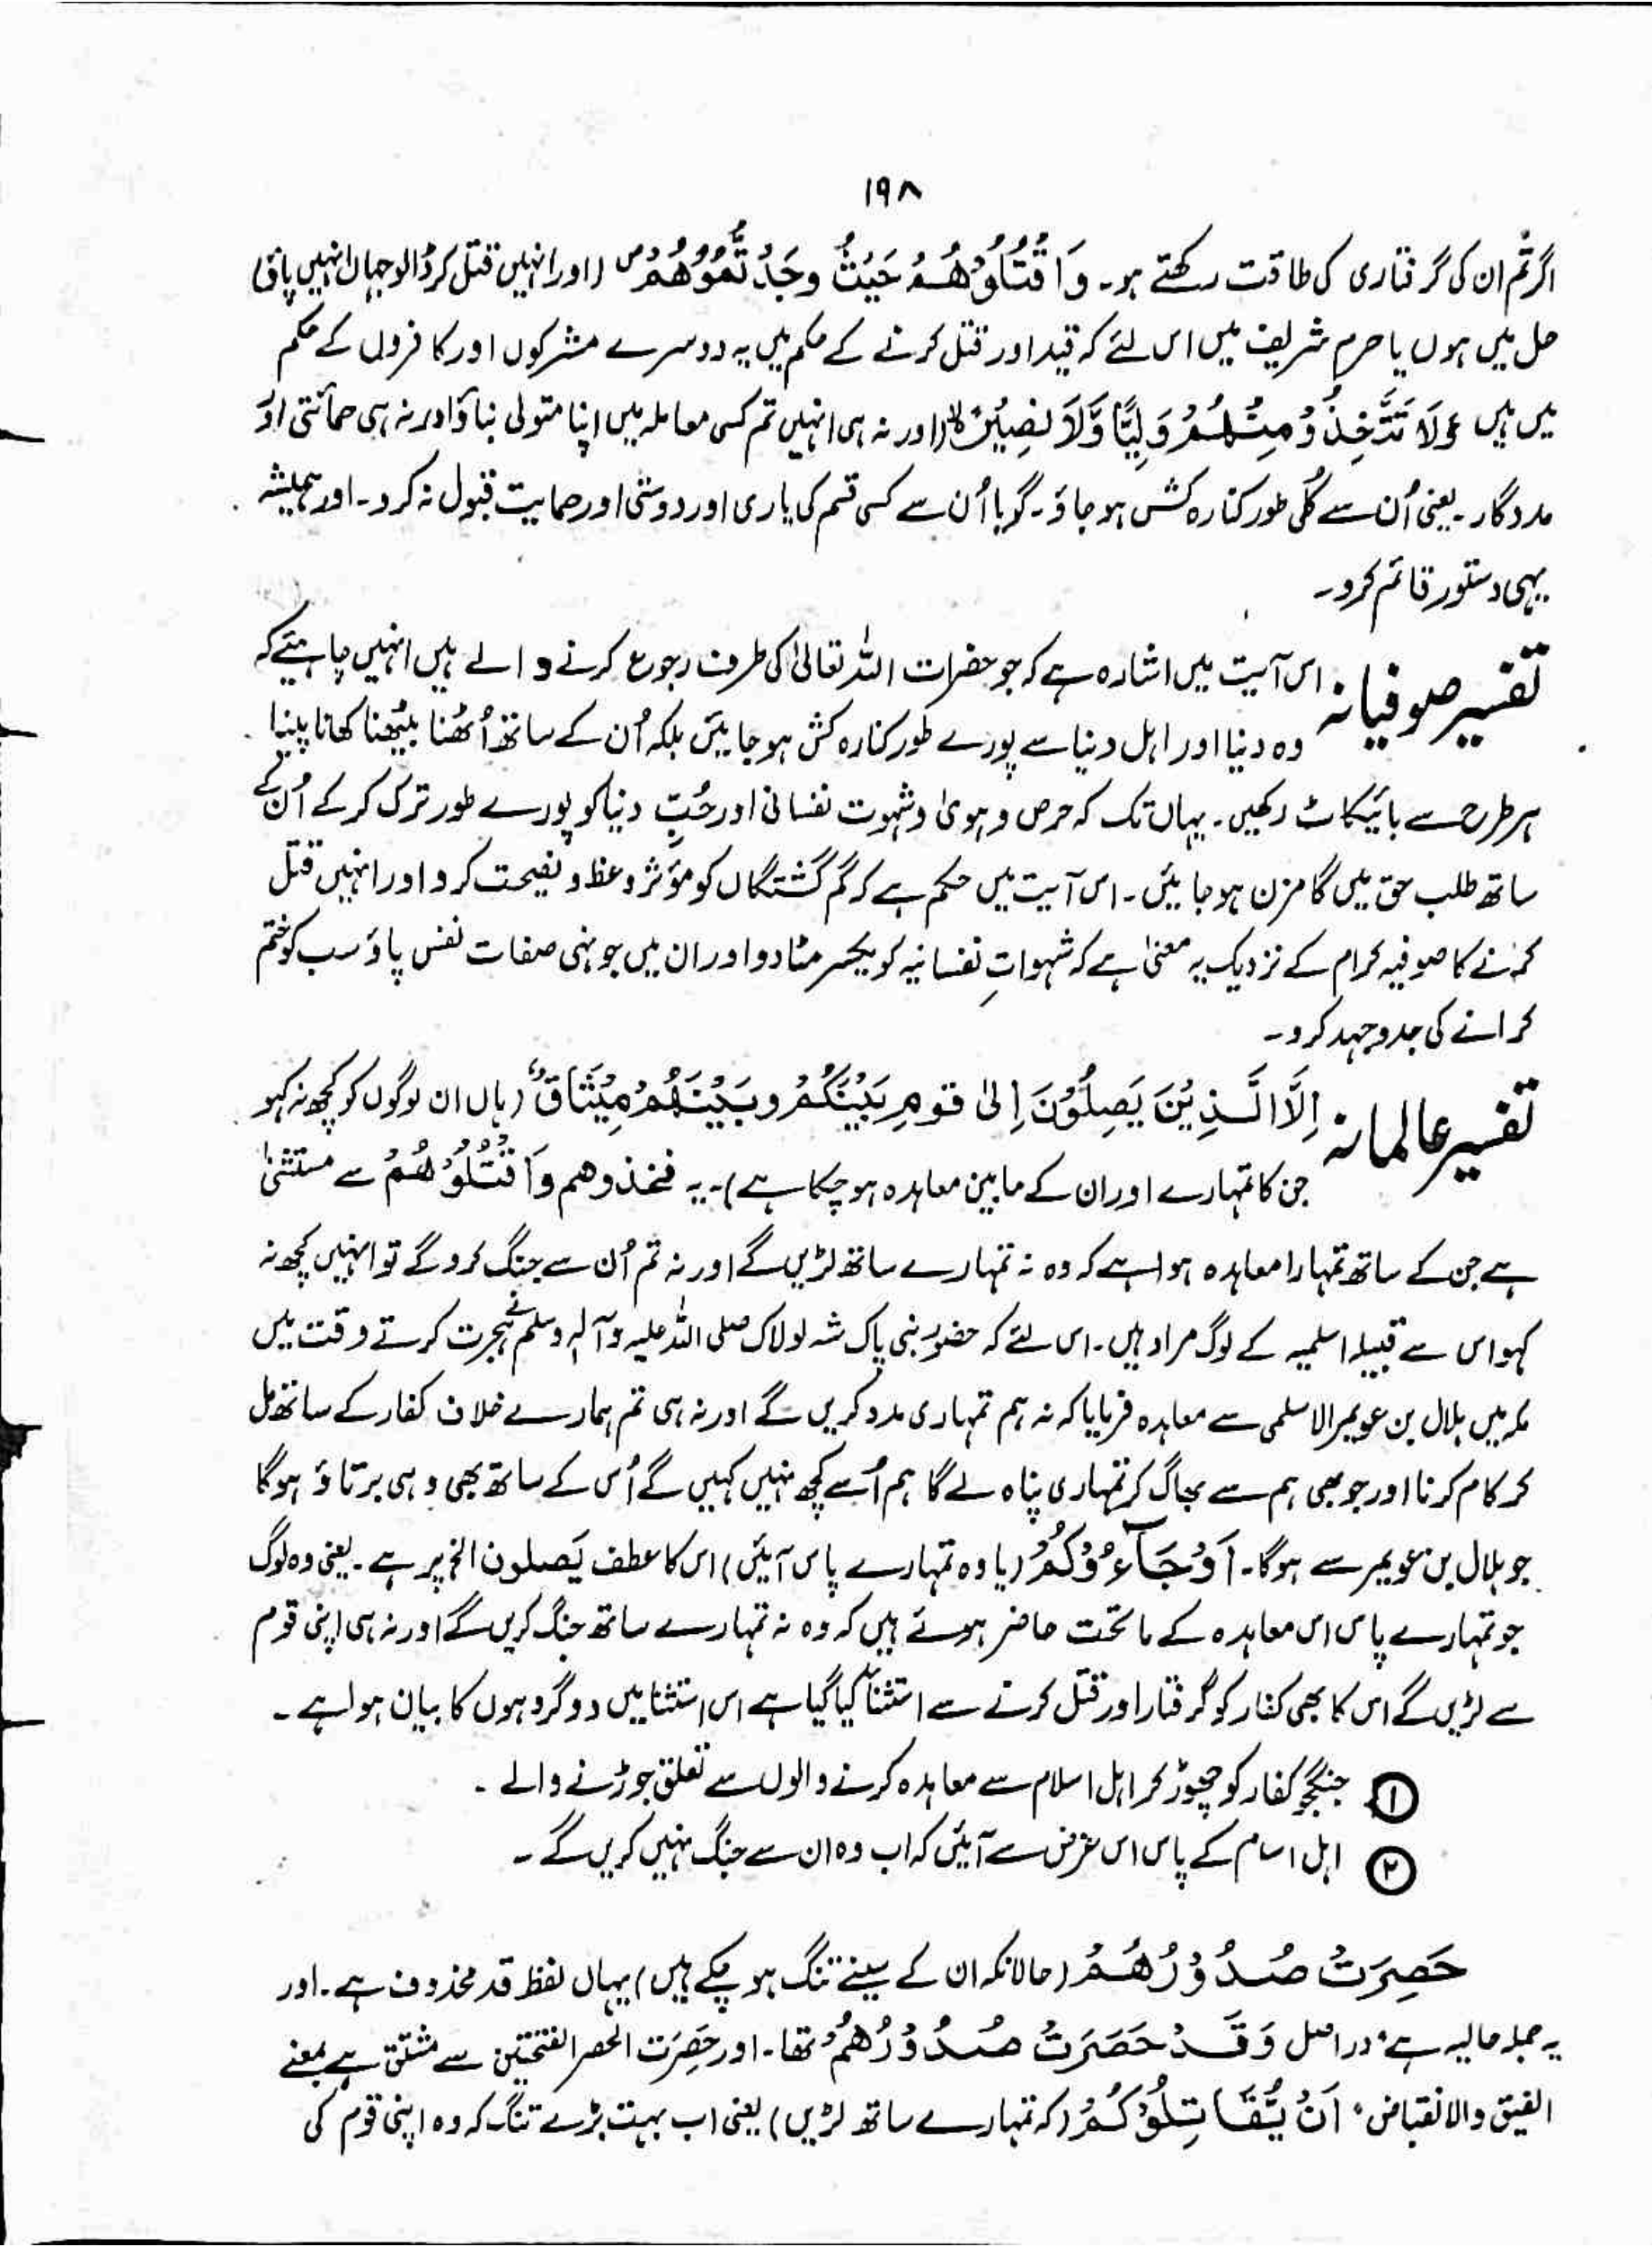 ۱۹۸
اگر تم ان کی گرفتاری کی طاقت رکھتے ہو۔ وَاقْتُلُوْهُمْ حَیْثُ وَجَدْتُّمُوْهُمْ ص (اور انہیں قتل کر ڈالو جہاں انہیں پاؤ)
حل میں ہوں یا حرم شریف میں اس لئے کہ قید اور قتل کرنے کے حکم میں یہ دوسرے مشرکوں اور کافروں کے حکم
میں ہیں وَلَا تَتَّخِذُوْا مِنْهُمْ وَلِیًّا وَّلَا نَصِیْرًا لا (اور نہ ہی انہیں تم کسی معاملہ میں اپنا متولی بناؤ اور نہ ہی حمائتی اور
مددگار۔ یعنی اُن سے کُلی طور کنارہ کش ہو جاؤ۔ گویا اُن سے کسی قسم کی یاری اور دوستی اور حمایت قبول نہ کرو۔ اور ہمیشہ
یہی دستور قائم کرو۔
تفسیر صوفیانہ اس آیت میں اشارہ ہے کہ جو حضرات اللہ تعالیٰ کی طرف رجوع کرنے والے ہیں انہیں چاہیئے کہ
وہ دنیا اور اہل دنیا سے پورے طور کنارہ کش ہو جائیں بلکہ اُن کے ساتھ اُٹھنا بیٹھنا کھانا پینا
ہر طرح سے بائیکاٹ رکھیں۔ یہاں تک کہ حرص و ہویٰ و شہوت نفسانی اور حُبِّ دنیا کو پورے طور ترک کر کے اُن کے
ساتھ طلب حق میں گامزن ہو جائیں۔ اس آیت میں حکم ہے کہ گم گشتگاں کو مؤثر وعظ و نصیحت کرو اور انہیں قتل
کرنے کا صوفیہ کرام کے نزدیک یہ معنیٰ ہے کہ شہواتِ نفسانیہ کو یکسر مٹا دو اور ان میں جونہی صفات نفس پاؤ سب کو ختم
کرانے کی جدوجہد کرو۔
تفسیر عالمانہ اِلَّا الَّذِیْنَ یَصِلُوْنَ اِلیٰ قومٍ بَیْنَکُمْ وبَیْنَهُمْ مِیْثَاقٌ (ہاں ان لوگوں کو کچھ نہ کہو
جن کا تمہارے اور ان کے مابین معاہدہ ہو چکا ہے)۔ یہ فخذوهم وَاقْتُلُوْهُمْ سے مستثنیٰ
ہے جن کے ساتھ تمہارا معاہدہ ہوا ہے کہ وہ نہ تمہارے ساتھ لڑیں گے اور نہ تم اُن سے جنگ کرو گے تو انہیں کچھ نہ
کہو اس سے قبیلہ اسلمیہ کے لوگ مراد ہیں۔ اس لئے کہ حضور نبی پاک شہ لولاک صلی اللہ علیہ وآلہٖ وسلم نے ہجرت کرتے وقت میں
مکہ میں ہلال بن عویمر الاسلمی سے معاہدہ فرمایا کہ نہ ہم تمہاری مدد کریں گے اور نہ ہی تم ہمارے خلاف کفار کے ساتھ مل
کر کام کرنا اور جو بھی ہم سے بھاگ کر تمہاری پناہ لے گا ہم اُسے کچھ نہیں کہیں گے اُس کے ساتھ بھی وہی برتاؤ ہو گا
جو ہلال بن عویمر سے ہوگا۔ اَوْجَآءُوْکُمْ (یا وہ تمہارے پاس آئیں) اس کا عطف یَصلون الخ پر ہے۔ یعنی وہ لوگ
جو تمہارے پاس اس معاہدہ کے ماتحت حاضر ہوئے ہیں کہ وہ نہ تمہارے ساتھ جنگ کریں گے اور نہ ہی اپنی قوم
سے لڑیں گے اس کا بھی کفار کو گرفتار اور قتل کرنے سے استثنا کیا گیا ہے اس استثنا میں دو گروہوں کا بیان ہوا ہے۔
① جنگجو کفار کو چھوڑ کر اہل اسلام سے معاہدہ کرنے والوں سے تعلق جوڑنے والے۔
② اہل اسلام کے پاس اس غرض سے آئیں کہ اب وہ ان سے جنگ نہیں کریں گے۔
حَصِرَتْ صُدُوْرُهُمْ (حالانکہ ان کے سینے تنگ ہو چکے ہیں) یہاں لفظ قد محذوف ہے۔ اور
یہ جملہ حالیہ ہے، دراصل وَقَدْ حَصَرَتْ صُدُوْرُهُمْ تھا۔ اور حَصِرَت الحصر الفتحتین سے مشتق ہے بمعنے
الضیق والانقباض، اَنْ یُّقَاتِلُوْکُمْ (کہ تمہارے ساتھ لڑیں) یعنی اب بہت بڑے تنگ کہ وہ اپنی قوم کی